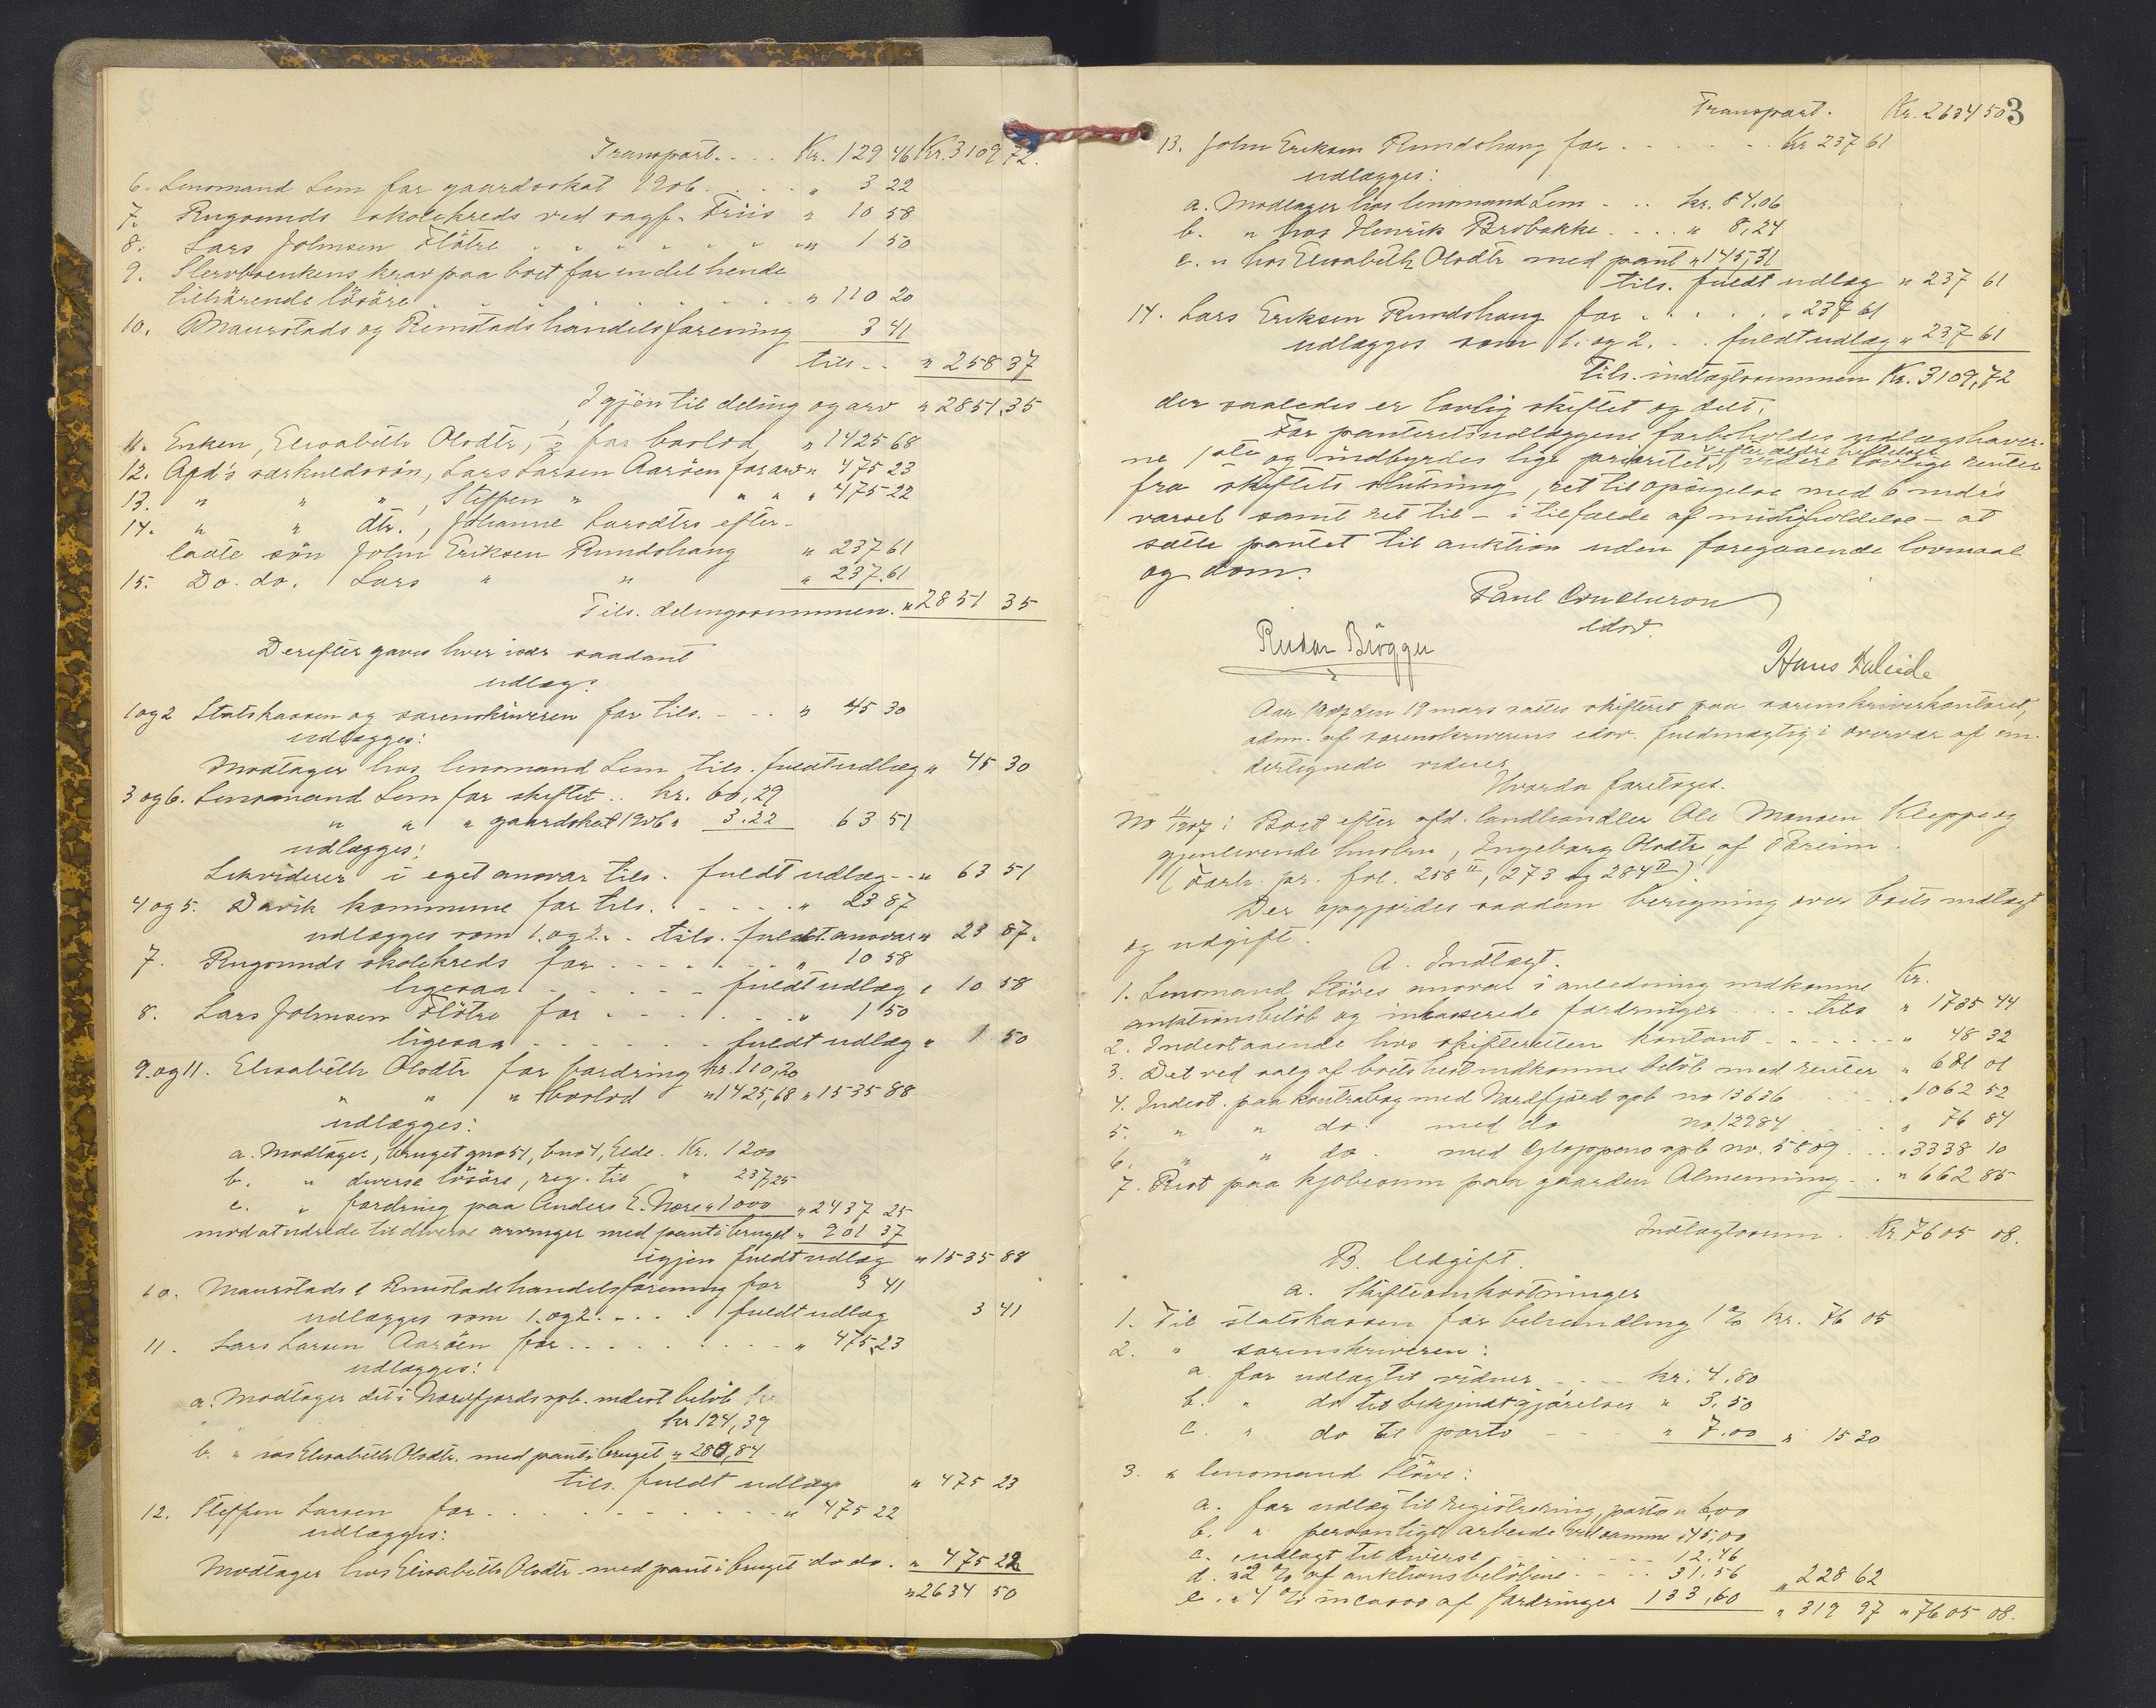 Transport. . . . Kr. 129 46 Kr. 3109 72.
6. Lensmand Lem for gaardsskat 1906. . . . „ 3 22
7. Rugsunds skolekreds ved sagf. Friis „ 10 58
8. Lars Johnsen Flötre „ „ „ „ „ „ „ 1 50
9. Stervboenkens krav paa boet for en del hende
tilhörende lösöre . . . . . . . . „ 110 20
10. Maurstads og Rimstads handelsforening 3 41
tils. . . „ 258 37
Igjen til deling og arv „ 2851,35
11. Enken, Elisabeth Olsdtr, 1/2 for boslod „ 1425 68
12. Afd's særkuldssön, Lars Larsen Aaröen for arv „ 475 23
13. „ „ „ , Steffen „ „ „ „ 475 22
14. „ „ dtr., Johanne Larsdtrs efter-
ladte sön John Eriksen Rundshaug „ 237 61
15. Do. do. Lars „ „ „ 237.61
Tils. delingssummen. „ 2851 35
Derefter gaves hver især saadant
udlæg:
1 og 2 Statskassen og sorenskriveren for tils. - . . „ 45 30
udlægges:
Modtager hos lensmand Lem tils. fuldt udlæg „ 45 30
3 og 6. Lensmand Lem for skiftet . . kr. 60,29
„ „ „ gaardskat 1906 „ 3.22 63 51
udlægges:
Likviderer i eget ansvar tils. fuldt udlæg - - „ 63 51
4 og 5. Davik kommune for tils. . . . . . „ 23 87
udlægges som 1. og 2. . tils. fuldt ansvar „ 23 87.
7. Rugsunds skolekreds for . . . . . „ 10 58
ligesaa . . . . . . fuldt udlæg „ 10 58
8. Lars Johnsen Flötre for . . . . . . „ 1 50
ligesaa . . . . . . fuldt udlæg „ 1 50
9. og 11. Elisabeth Olsdtr for fordring kr. 110,20
„ „ „ boslod „ 1425,68 „ 1535 88
udlægges:
a. Modtager, bruget gno 51, bno 4, Elde. Kr. 1200
b. „ diverse lösöre, reg. til „ 237,25
c. „ fordring paa Anders E. Nore „ 1000 „ 2437 25
mod at udrede til diverse arvinger med pant i bruget „ 901 37
igjen fuldt udlæg „ 1535 88
10. Maurstads & Rimstads handelsforening for 3 41
udlægges som 1. og 2. . . . . fuldt udlæg 3 41
11. Lars Larsen Aaröen for . . . . . . . . „ 475 23
udlægges:
a. Modtager det i Nordfjords spb. indest beløb
kr 194,39
b. „ hos Elisabeth Olsdtr. med pant i bruget „ 280,84
tils. fuldt udlæg „ 475 23
12. Steffen Larsen for . . . . . . . . . „ 475 22
udlægges:
Modtager hos Elisabeth Olsdtr. med pant i bruget do do. „ 475 22
„ 2634 50
3
Transport. Kr. 2634 50
13. John Eriksen Rundshaug for . . . . . . . Kr 237 61
udlægges:
a. Modtager hos lensmand Lem . . . kr. 84.06
b. „ hos Henrik Brobakke . . . . „ 8,24
c. „ hos Elisabeth Olsdtr med pant „ 145,31
tils. fuldt udlæg „ 237 61
14. Lars Eriksen Rundshaug for . . . . . „ 237 61
udlægges som 1. og 2. . . fuldt udlæg „ 237 61
Tils. indtægtssummen Kr. 3109,72
der saaledes er lovlig skiftet og delt.
For panteretsudlæggene forbeholdes udlægshaver-
efter ældre heftelser
ne 1ste og indbyrdes lige prioritet, videre lovlige renter
fra skiftets slutning, ret til opsigelse med 6 mdr's
varsel samt ret til – i tilfælde af misligholdelse – at
sætte pantet til auktion uden foregaaende lovmaal
og dom.
edsv.
Hans
Aar 1907 den 19 mars sattes skifteret paa sorenskriverkontoret,
adm. af sorenskriverens edsv. fuldmægtig i overvær af un-
dertegnede vidner
Hvorda foretoges.
No 11/1907: Boet efter afd. landhandler Ole Monsen Kleppe og
gjenlevende hustru, Ingeborg Olsdtr af Færeim.
(Forh. pr. fol. 258 II, 273 og 284 II).
Der opgjordes saadan beregning over boets indtægt
og udgift.
A. Indtægt.
1. Lensmand Støves ansvar i anledning indkomne Kr.
auktionsbelöb og inkasserede fordringer . . . . tils „ 1735 44
2. Indestaaende hos skifteretten kontant . . . . . . . „ 48 32
3. Det ved salg af boets hest indkomne belöb med renter „ 681 01
4. Indest. paa kontrabog med Nordfjord spb no 13636 . . . . „ 1062 52
5. „ „ do. med do no. 12984 . . . . „ 76 84
6. „ „ do. med Gloppens spb no. 5809 . . „ 3338 10
7. Rest paa kjøbesum paa gaarden Almenning . . „ 662 85
Indtægtssum. Kr. 7605 08.
B. Udgift.
a. Skifteomkostninger
1. Til statskassen for behandling 1 % Kr. 76 05
2. „ sorenskriveren:
a. for udlæg til vidner . . . . kr. 4.80
b. „ do til bekjendtgjørelser „ 3.50
c. „ do til porto - - - „ 7.00 „ 15 30
3. „ lensmand Støve:
a. for udlæg til registrering, porto „ 6,00
b. „ personligt arbeide ved samme „ 45,00
c. „ udlagt til diverse . . . . . . 12.46
d. „ 2 % af auktionsbelöbene . . . . 31.56
e. „ 4 % incasso af fordringer 133,60 „ 228 62
„ 319 97 „ 7605 08.